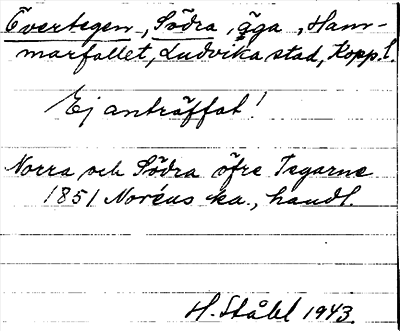 Övertegen, Södra, äga, Ham-
marfallet, Ludvika stad, Kopp.l.
Ej anträffat!
Norra och Södra öfre Tegarne
1851 Noréus ka., handl.
H. Ståhl 1943.